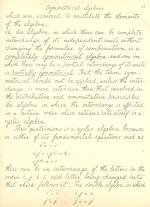 Symmetrical Algebras
which was assumed, to constitute the elements
of the algebra.
An algebra in which there can be complete
interchange of its independent units, without
changing the formulae of combination, is a
completely symmetrical algebra; and one in
which there may be a partial interchange of its units
is partially symmetrical. But the term sym-
metrical should not be applied, unless the inter-
change is more extensive than that involved in
the distributive and commutative principles.
An algebra in which the interchange is effected
in a certain order which returns into itself is a
cyclic algebra.
Thus quaternions is a cyclic algebra, because
in either of its fundamental equations such as
there can be an interchange of the letters in the
order i, j, k, i, each letter being changed into
that which follows it. The double algebra in which